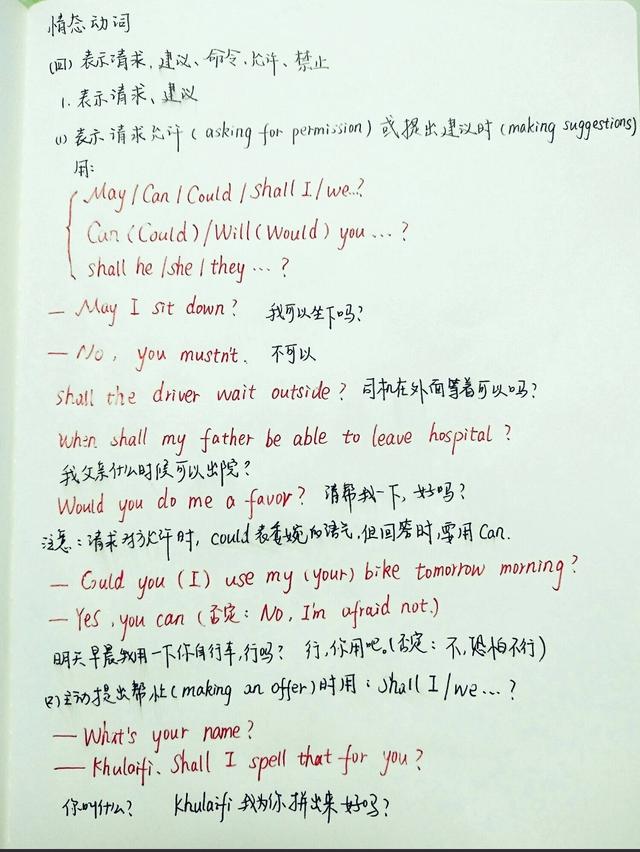 情态动词
(四) 表示请求、建议、命令、允许、禁止
1. 表示请求、建议
(1) 表示请求允许 (asking for permission) 或提出建议时 (making suggestions)
用:
May / Can / Could / shall I / we...?
Can (Could) / Will (Would) you ... ?
shall he / she / they ... ?
— May I sit down? 我可以坐下吗?
— No, you mustn't. 不可以
shall the driver wait outside? 司机在外面等着可以吗?
When shall my father be able to leave hospital ?
我父亲什么时候可以出院?
Would you do me a favor? 请帮我一下, 好吗?
注意: 请求对方允许时, could 表委婉的语气, 但回答时, 要用 Can.
— Could you (I) use my (your) bike tomorrow morning?
— Yes, you can (否定: No, I'm afraid not.)
明天早晨我用一下你自行车, 行吗? 行, 你用吧。(否定: 不, 恐怕不行)
(2) 主动提出帮忙 (making an offer) 时用: shall I / we ... ?
— What's your name?
— Khulaifi. Shall I spell that for you?
你叫什么? Khulaifi 我为你拼出来好吗?